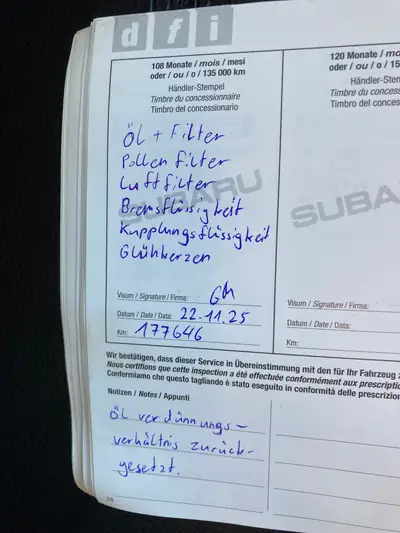 d f i
108 Monate / mois / mesi
oder / ou / o / 135 000 km
Händler-Stempel
Timbre du concessionnaire
Timbro del concessionario
SUBARU
Öl + Filter
Pollen filter
Luftfilter
Bremsflüssigkeit
Kupplungsflüssigkeit
Glühkerzen
Visum / Signature / Firma:
Datum / Date / Data: 22.11.25
Km: 177646
120 Monate / mo
oder / ou / o / 15
Händler-Stem
Timbre du conces
Timbro del conces
SUBA
Visum / Signature / Firma:
Datum / Date / Data:
Km:
Wir bestätigen, dass dieser Service in Übereinstimmung mit den für Ihr Fahrzeug
Nous certifions que cette inspection a été effectuée conformément aux prescription
Confermiamo che questo tagliando è stato eseguito in conformità delle prescrizion
Notizen / Notes / Appunti
Öl verdünnungs-
verhältnis zurück-
gesetzt.